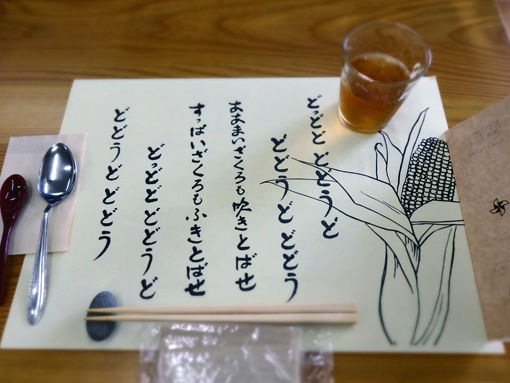 どっどど どどうど
どどうど どどう
ああまいざくろも吹きとばせ
すっぱいざくろもふきとばせ
どっどどどどうど
どどうどどどう